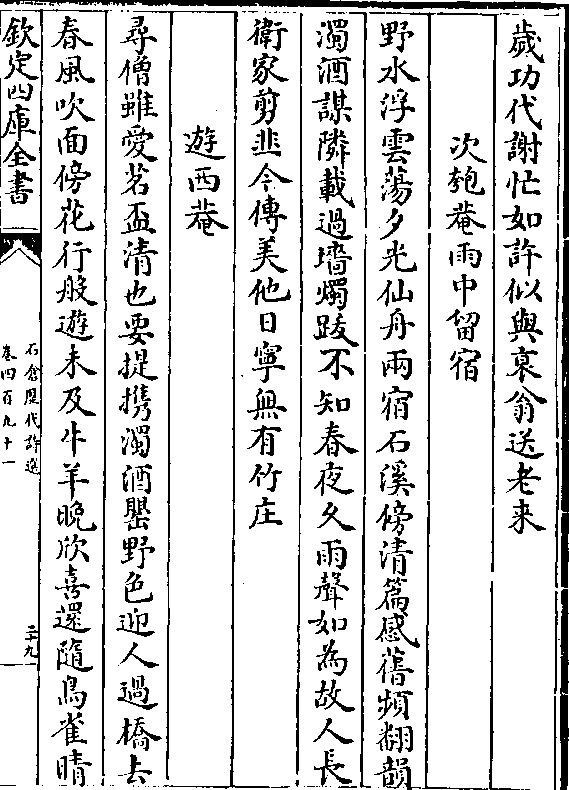 歲功代謝忙如許似與衰翁送老来
次匏菴雨中留宿
野水浮雲蕩夕光仙舟兩宿石溪傍清篇感舊頻翻韻
濁酒謀隣載過墻燭跋不知春夜久雨聲如為故人長
衛家剪韭今傳美他日寧無有竹庄
遊西菴
尋僧雖愛茗盃清也要提携濁酒罌野色迎人過橋去
春風吹面傍花行般遊未及牛羊晚欣喜還隨鳥雀晴
欽定四庫全書
石倉歷代詩選
卷四百九十一
三九